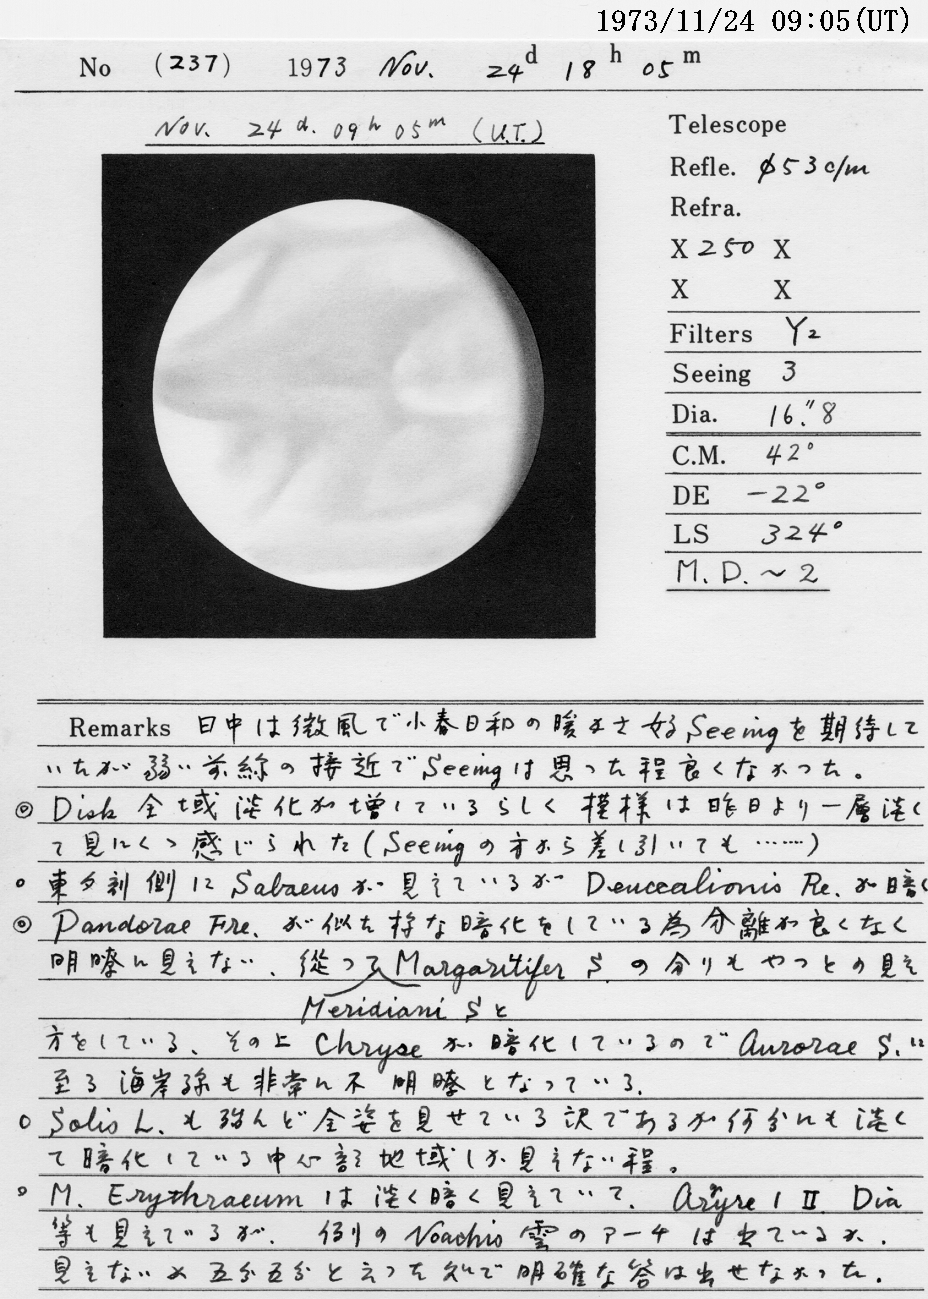 1973/11/24 09:05(UT)
No (237) 1973 Nov. 24d 18h 05m
Nov. 24d. 09h 05m (U.T.)
Telescope
Refle. φ53c/m
Refra.
X 250 X
X X
Filters Y2
Seeing 3
Dia. 16."8
C.M. 42°
DE -22°
LS 324°
M. D. ~ 2
Remarks 日中は微風で小春日和の暖かさ 好Seeingを期待して
いたが弱い前線の接近でSeeingは思った程良くなかった。
◎ Disk 全域淡化が増しているらしく 模様は昨日より一層淡く
て見にくく感じられた(Seeingの方から差し引いても……)
○ 東夕刻側に Sabaeusが見えているが Deucalionis Re.が暗く
◎ Pandorae Fre. が似た様な暗化をしている為分離が良くなく
明瞭に見えない、従って Margaritifer S の分りもやっとの見え
Meridiani Sと
方をしている、その上 Chryseが暗化しているので Aurorae S.に
至る海岸線も非常に不明瞭となっている.
○ Solis L. も殆んど全姿を見せている訳であるが何分にも淡く
て暗化している中心部地域しか見えない程。
○ M. Erythraeum は淡く暗く見えていて. Argyre I II Dia
等も見えているが. 例の Noachis 雲のアーチは出ているか.
見えないか五分五分と云った処で明確な答は出せなかった.